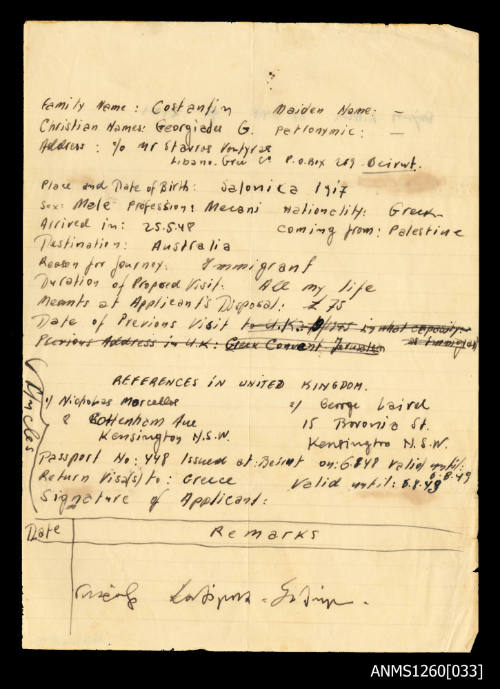 Family Name: Costantin Maiden Name: —
Christian Names: Georgiades G. Patronymic: —
Address: c/o Mr Stavros
Libano. Grec P.O.Box 289 Beirut.
Place and Date of Birth: Salonica 1917
Sex: Male Profession: Mecani Nationality: Greek
Arrived in: 25.5.48 Coming from: Palestine
Destination: Australia
Reason for Journey: Immigrant
Duration of Proposed Visit: All my life
Meants at Applicant's Disposal: £ 75
Date of Previous Visit to U.K.: in what capacity:
Previous Address in U.K: Greek Convent Jerusalem as Immigrant
REFERENCES IN UNITED KINGDOM.
1/ Nicholas Marcellos 2/ George Laird
2 Cottenham Ave 15 Boronia St.
Kensington N.S.W. Kensingtro N.S.W.
Uncles
Passport No: 448 Issued at: Beirut on: 6.8.48 Valid until:
8.8.49
Return Visa(s) to: Greece Valid until: 8.8.49
Signature of Applicant:
Date Remarks
ANMS1260[033]